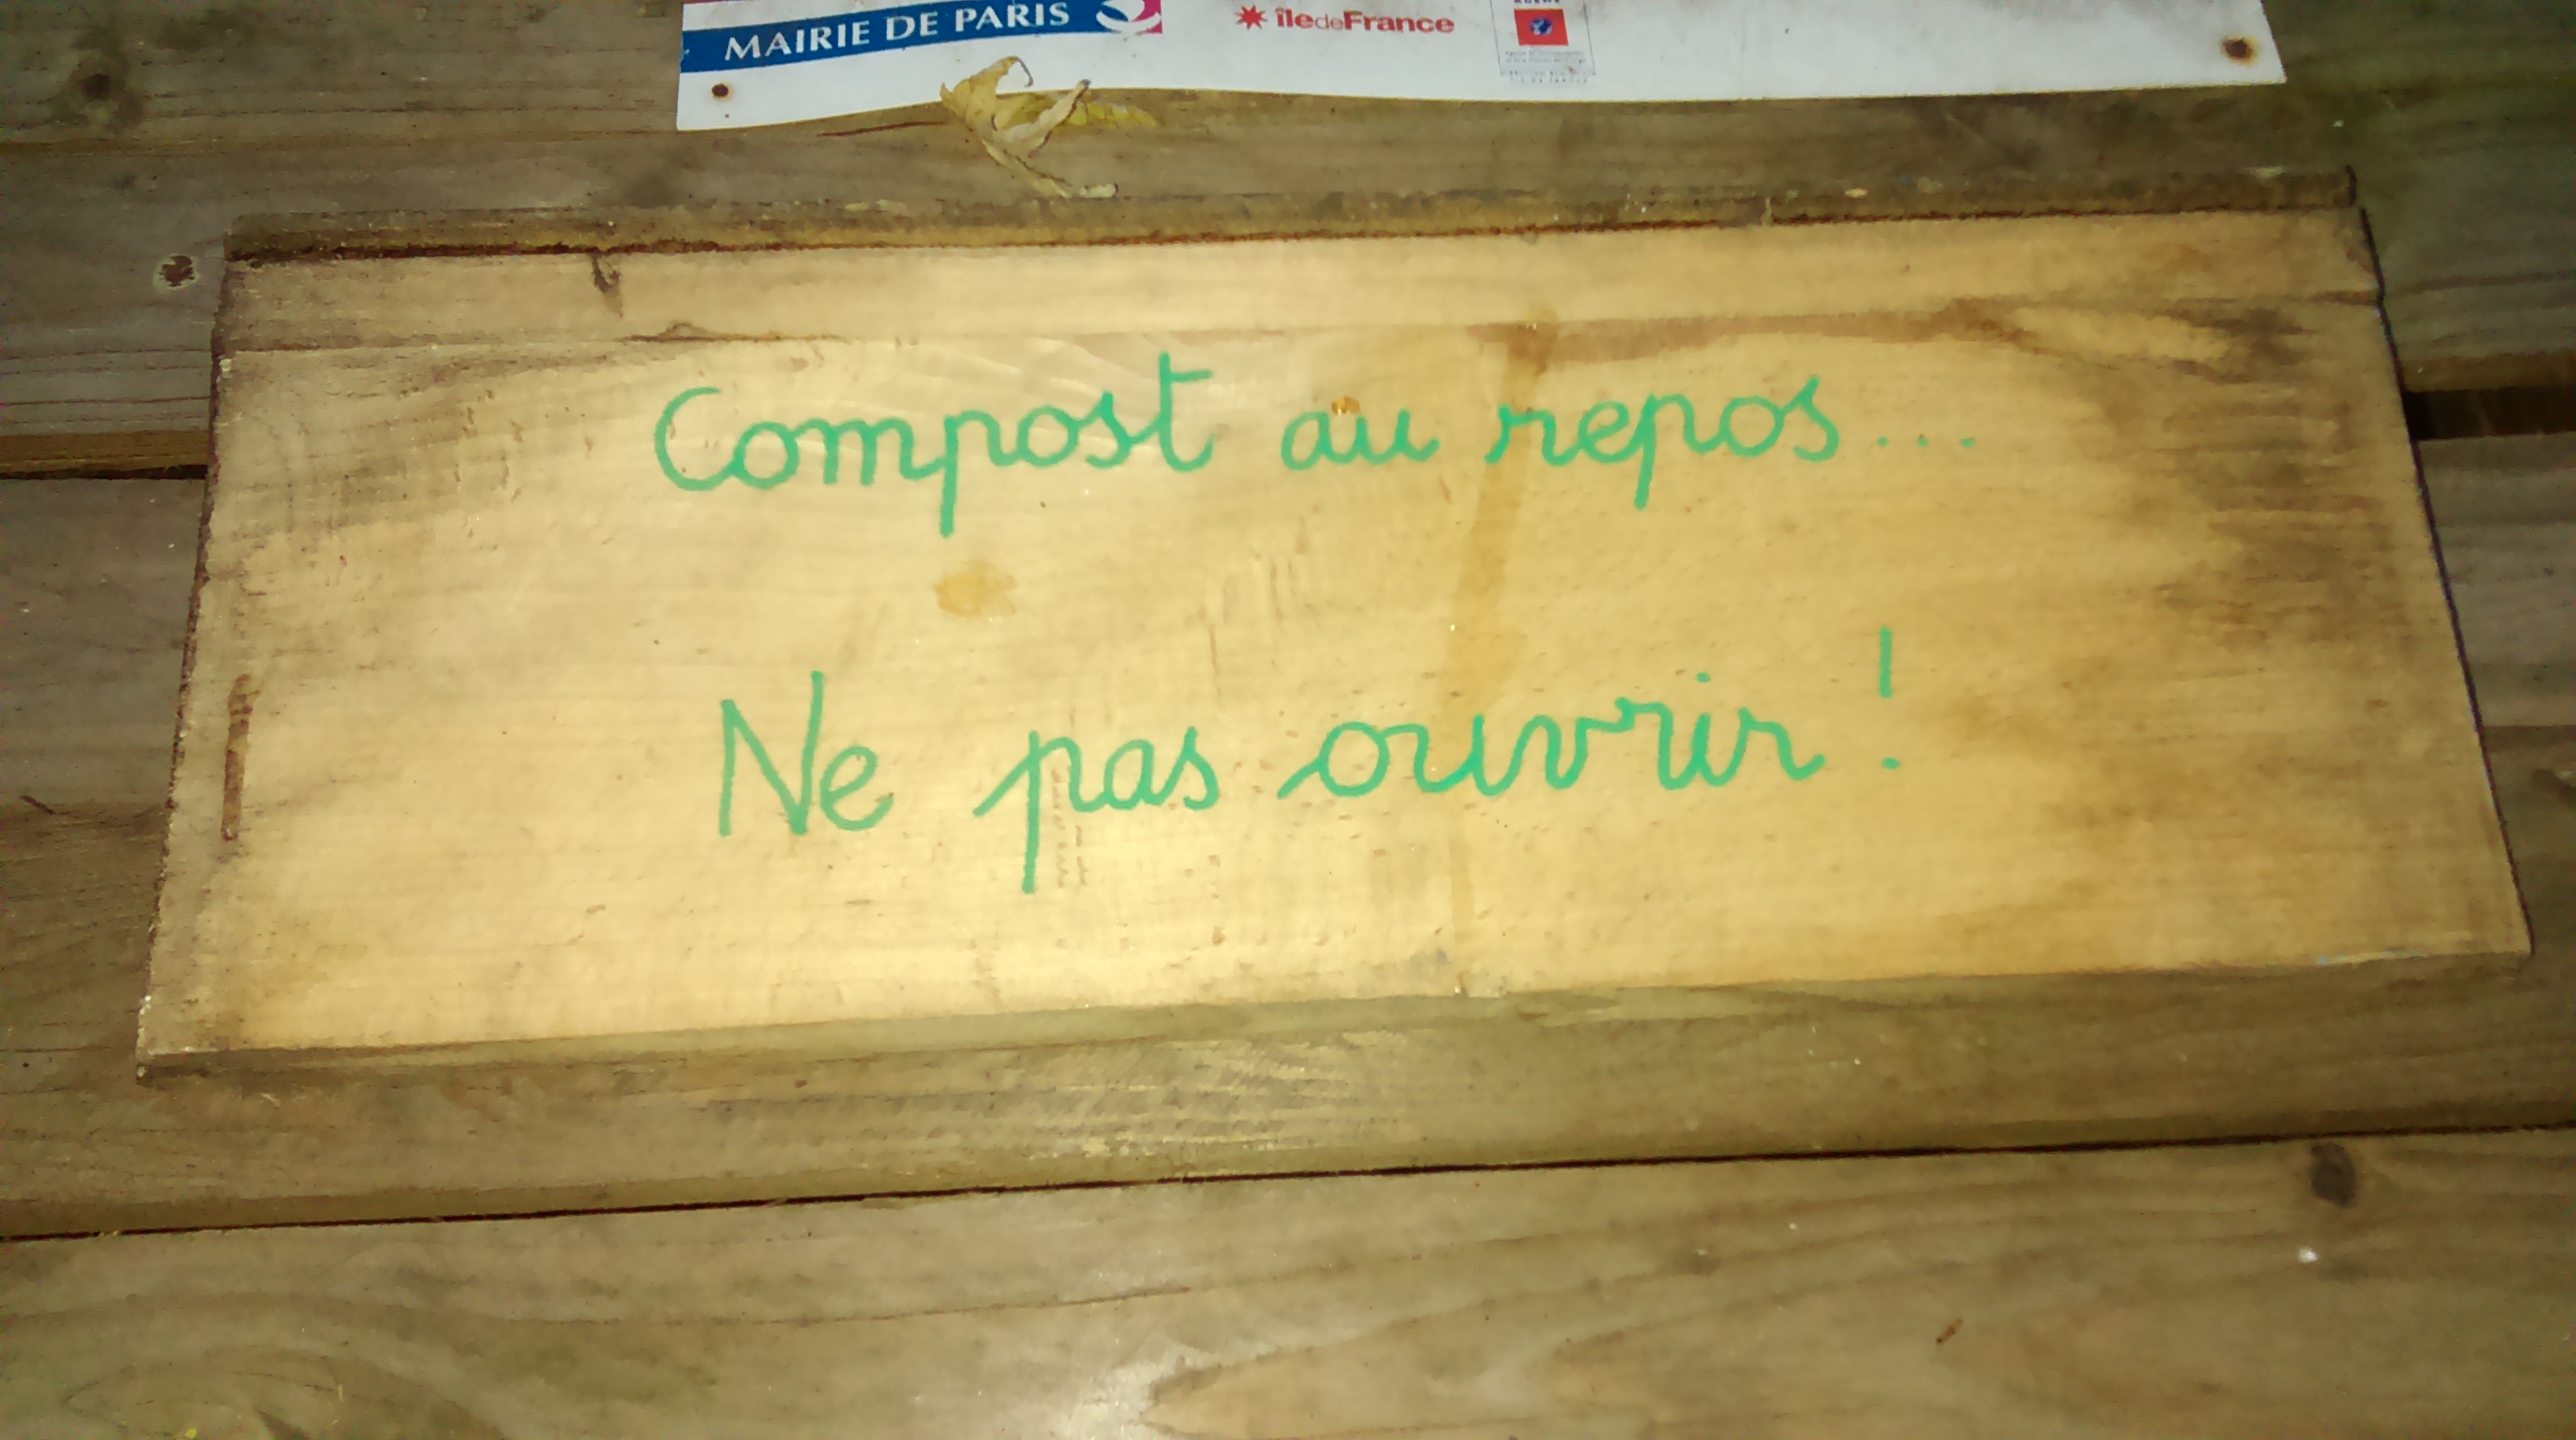 MAIRIE DE PARIS
îledeFrance
Compost au repos...
Ne pas ouvrir !